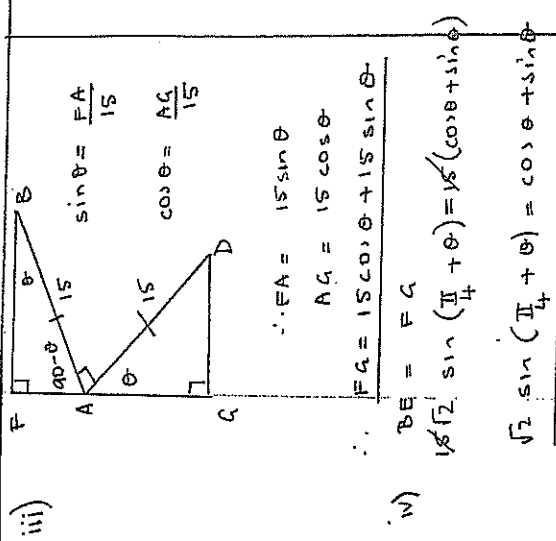 iii)
F
B
θ
90-θ
15
A
θ
15
G
D
sinθ = FA/15
cosθ = AG/15
∴ FA = 15 sinθ
AG = 15 cosθ
∴ FG = 15 cosθ + 15 sinθ
iv) BE = FG
15√2 sin (π/4 + θ) = 15 (cosθ + sinθ)
√2 sin (π/4 + θ) = cosθ + sinθ